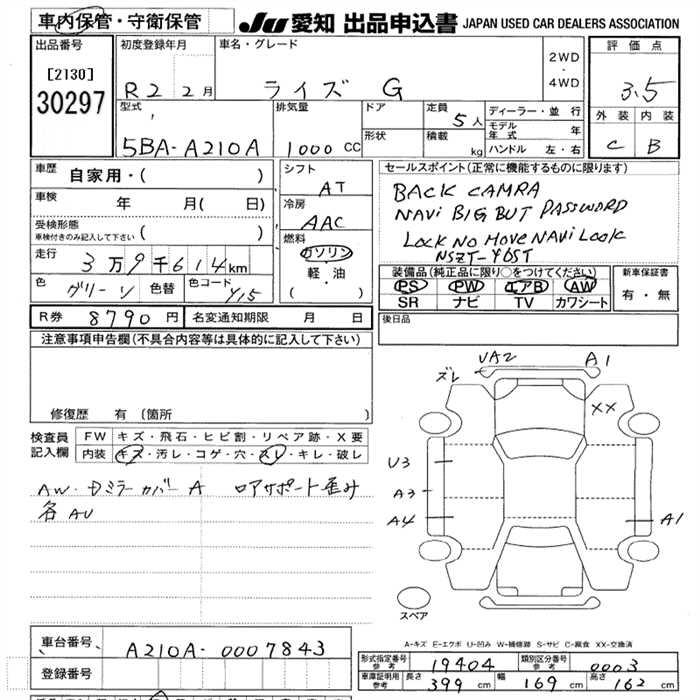 車内保管・守衛保管 JU 愛知 出品申込書 JAPAN USED CAR DEALERS ASSOCIATION
出品番号 [2130] 30297
初度登録年月 R2 2月
車名・グレード ライズ G
2WD・4WD
評価点 3.5
外装 C 内装 B
型式 5BA-A210A
排気量 1000 CC
ドア
形状
定員 5人
積載 kg
ディーラー・並行
モデル年式 年
ハンドル 左・右
車歴 自家用・( )
車検 年 月( 日)
受検形態
車検付きのみ記入して下さい ( )
走行 3万9千614km
色 グリーン 色替 色コード Y15
シフト AT
冷房 AAC
燃料 ガソリン・軽・油
( )
セールスポイント(正常に機能するものに限ります)
BACK CAMRA
NAVI BIG BUT PASSWORD
LOCK NO MOVE NAVI LOOK
NSZT-Y6ST
装備品(純正品に限り○をつけてください)
PS PW エアB AW
SR ナビ TV カワシート
新車保証書
有・無
R券 8790円 名変通知期限 月 日
後日品
注意事項申告欄(不具合内容等は具体的に記入して下さい)
修復歴 有(箇所 )
検査員記入欄 FW キズ・飛石・ヒビ割・リペア跡・X要
内装 キズ・汚レ・コゲ・穴・スレ・キレ・破レ
AW・Dミラーカバー A ロアサポート歪み
各AU
ズレ UA2 A1
XX
U3
A3
A4 A1
スペア
A-キズ E-エクボ U-凹み W-補修跡 S-サビ C-腐食 XX-交換済
車台番号 A210A-0007843
登録番号
形式指定番号 参考 19404 類別区分番号 参考 0003
車庫証明用 参考 長さ 399 cm 幅 169 cm 高さ 162 cm